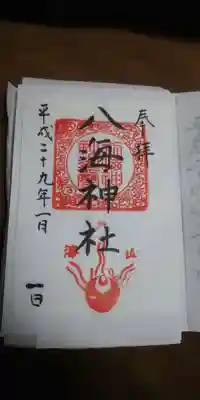 奉拝
八海神社
平成二十九年一月
一日